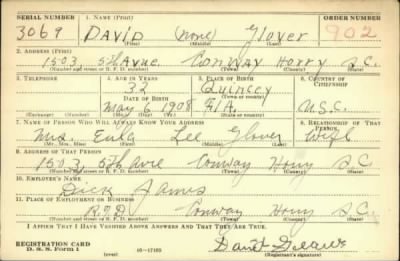 SERIAL NUMBER 1. NAME (Print) ORDER NUMBER
3069 DAVID (none) Glover 902
(First) (Middle) (Last)
2. ADDRESS (Print)
1503, 5th Avue. Conway Horry S.C.
(Number and street or R. F. D. number) (Town) (County) (State)
3. TELEPHONE 4. AGE IN YEARS 5. PLACE OF BIRTH 6. COUNTRY OF CITIZENSHIP
32 Quincey
(Town or county)
DATE OF BIRTH
May 6 1908 FlA. U.S.
(Exchange) (Number) (Mo.) (Day) (Yr.) (State or country)
7. NAME OF PERSON WHO WILL ALWAYS KNOW YOUR ADDRESS 8. RELATIONSHIP OF THAT PERSON
Mrs. Eula Lee Glover Wife
(Mr., Mrs., Miss) (First) (Middle) (Last)
9. ADDRESS OF THAT PERSON
1503, 5th Avre Conway Horry S.C
(Number and street or R. F. D. number) (Town) (County) (State)
10. EMPLOYER'S NAME
Dick James
11. PLACE OF EMPLOYMENT OR BUSINESS
R.F.D Conway Horry S.C.
(Number and street or R. F. D. number) (Town) (County) (State)
I AFFIRM THAT I HAVE VERIFIED ABOVE ANSWERS AND THAT THEY ARE TRUE.
REGISTRATION CARD
D. S. S. Form 1 (over) (Registrant's signature)